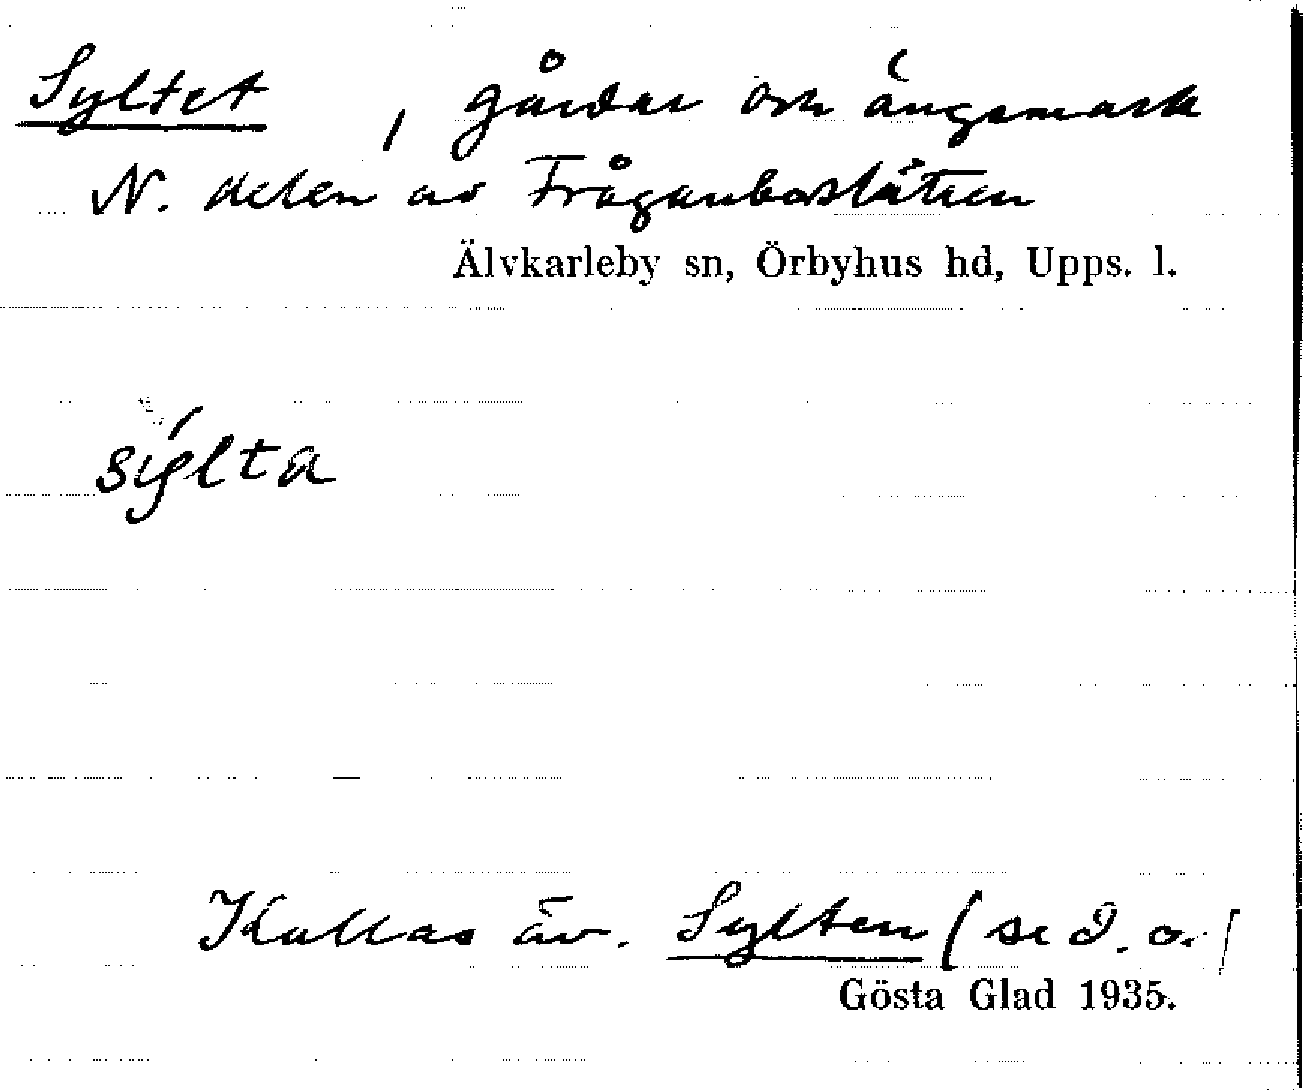 Syltet, gårdar och ängsmark
N. delen av Fråganboslätten
Älvkarleby sn, Örbyhus hd, Upps. l.
sýlta
Kallas äv. Sylten (se d. o.)
Gösta Glad 1935.